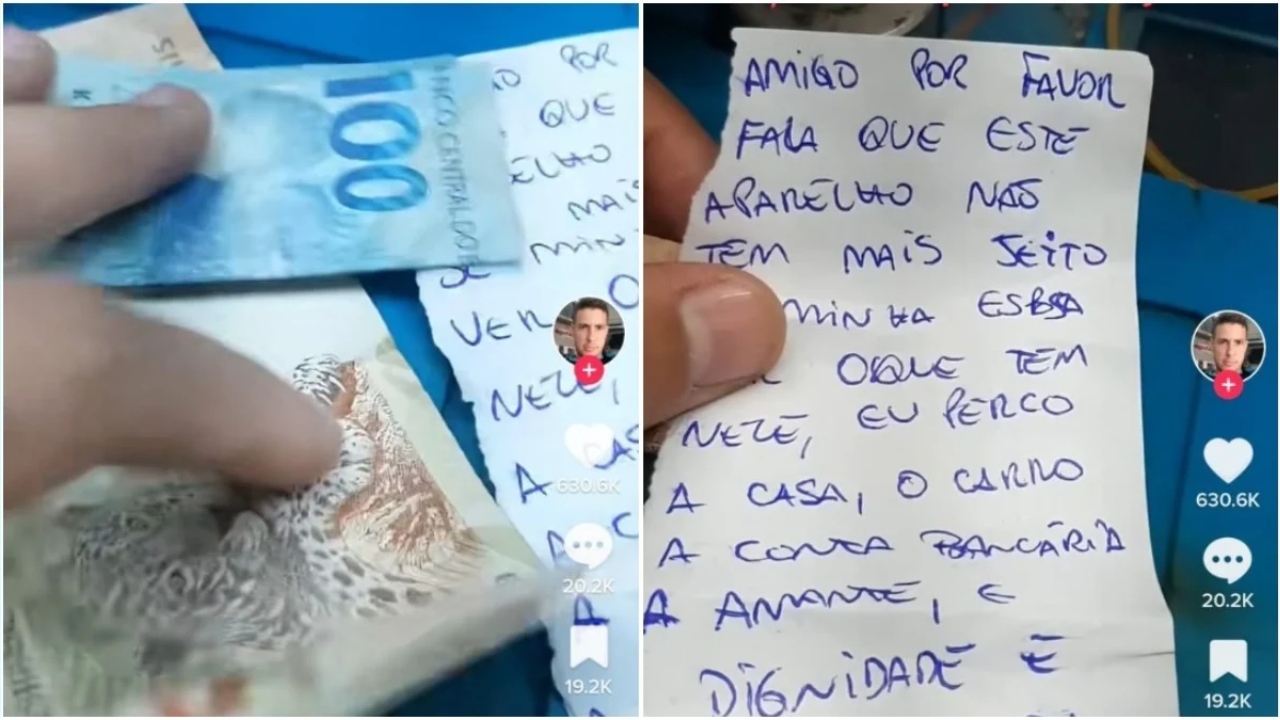 100
BANCO CENTRAL DO B
POR
QUE
ELHO
MAIS
SE MIN
VER O
NELE,
A CAS
A C
A
630.6K
20.2K
19.2K
AMIGO POR FAVOR
FALA QUE ESTE
APARELHO NÃO
TEM MAIS JEITO
MINHA
OQUE TEM
NELE, EU PERCO
A CASA, O CARRO
A CONTA BANCÁRIA
A AMANTE, E
DIGNIDADE E
630.6K
20.2K
19.2K